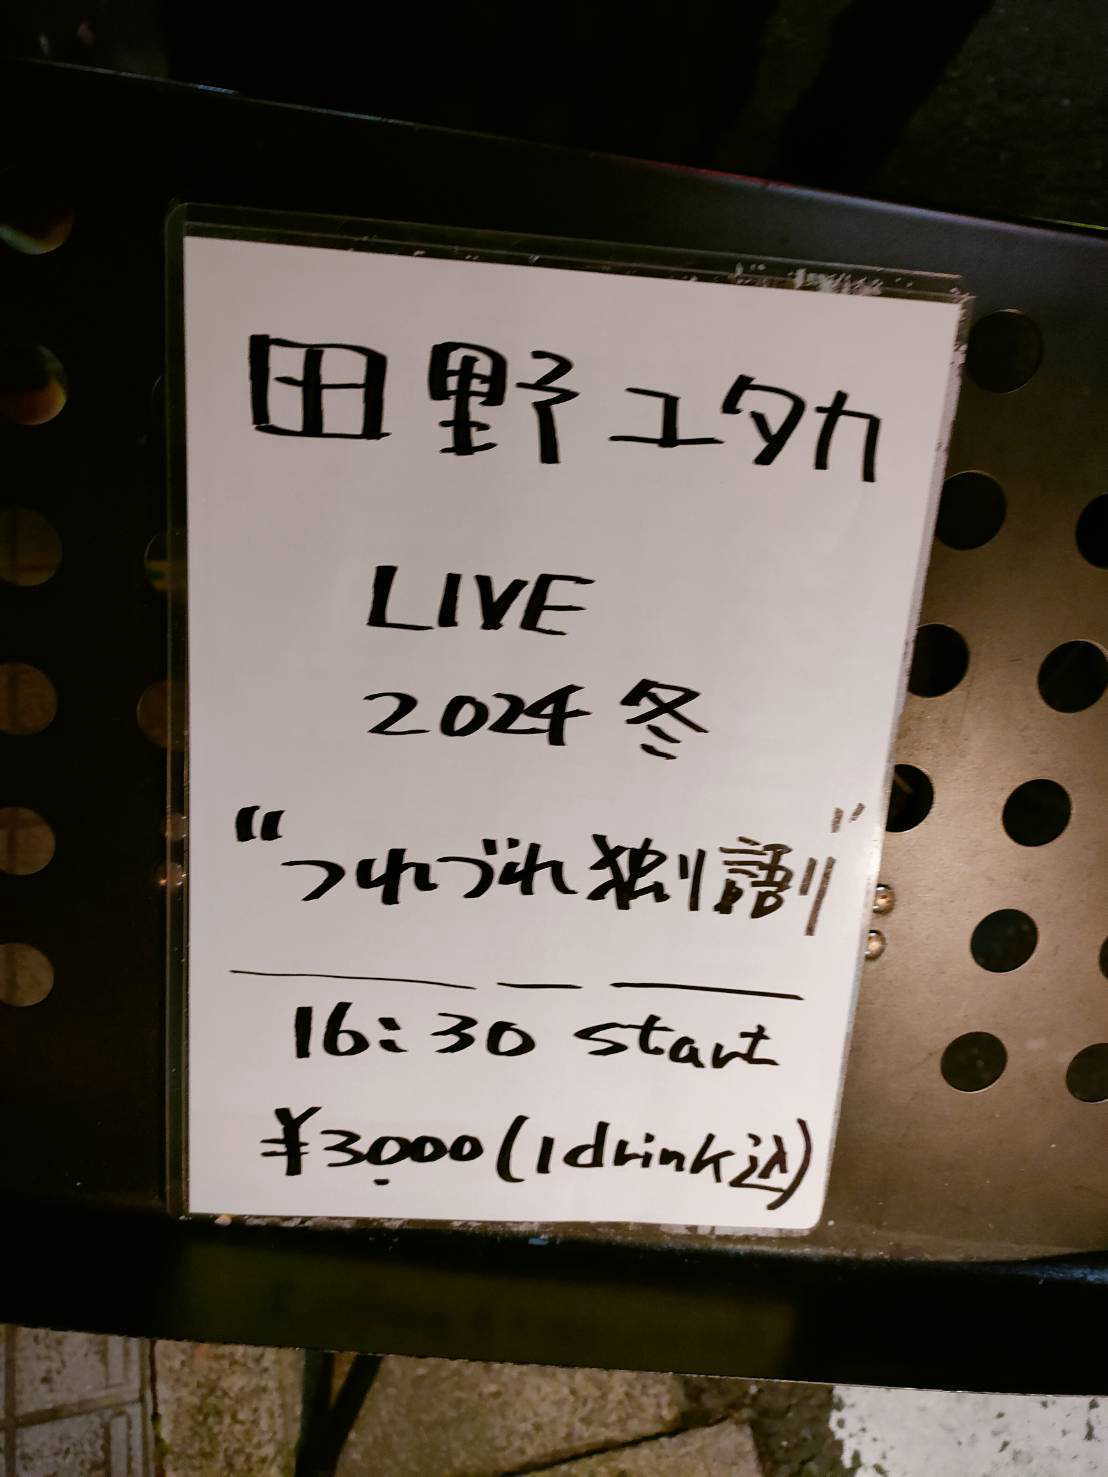 田野ユタカ
LIVE
2024 冬
"つれづれ独り語り"
16:30 start
¥3,000 (1drink込)